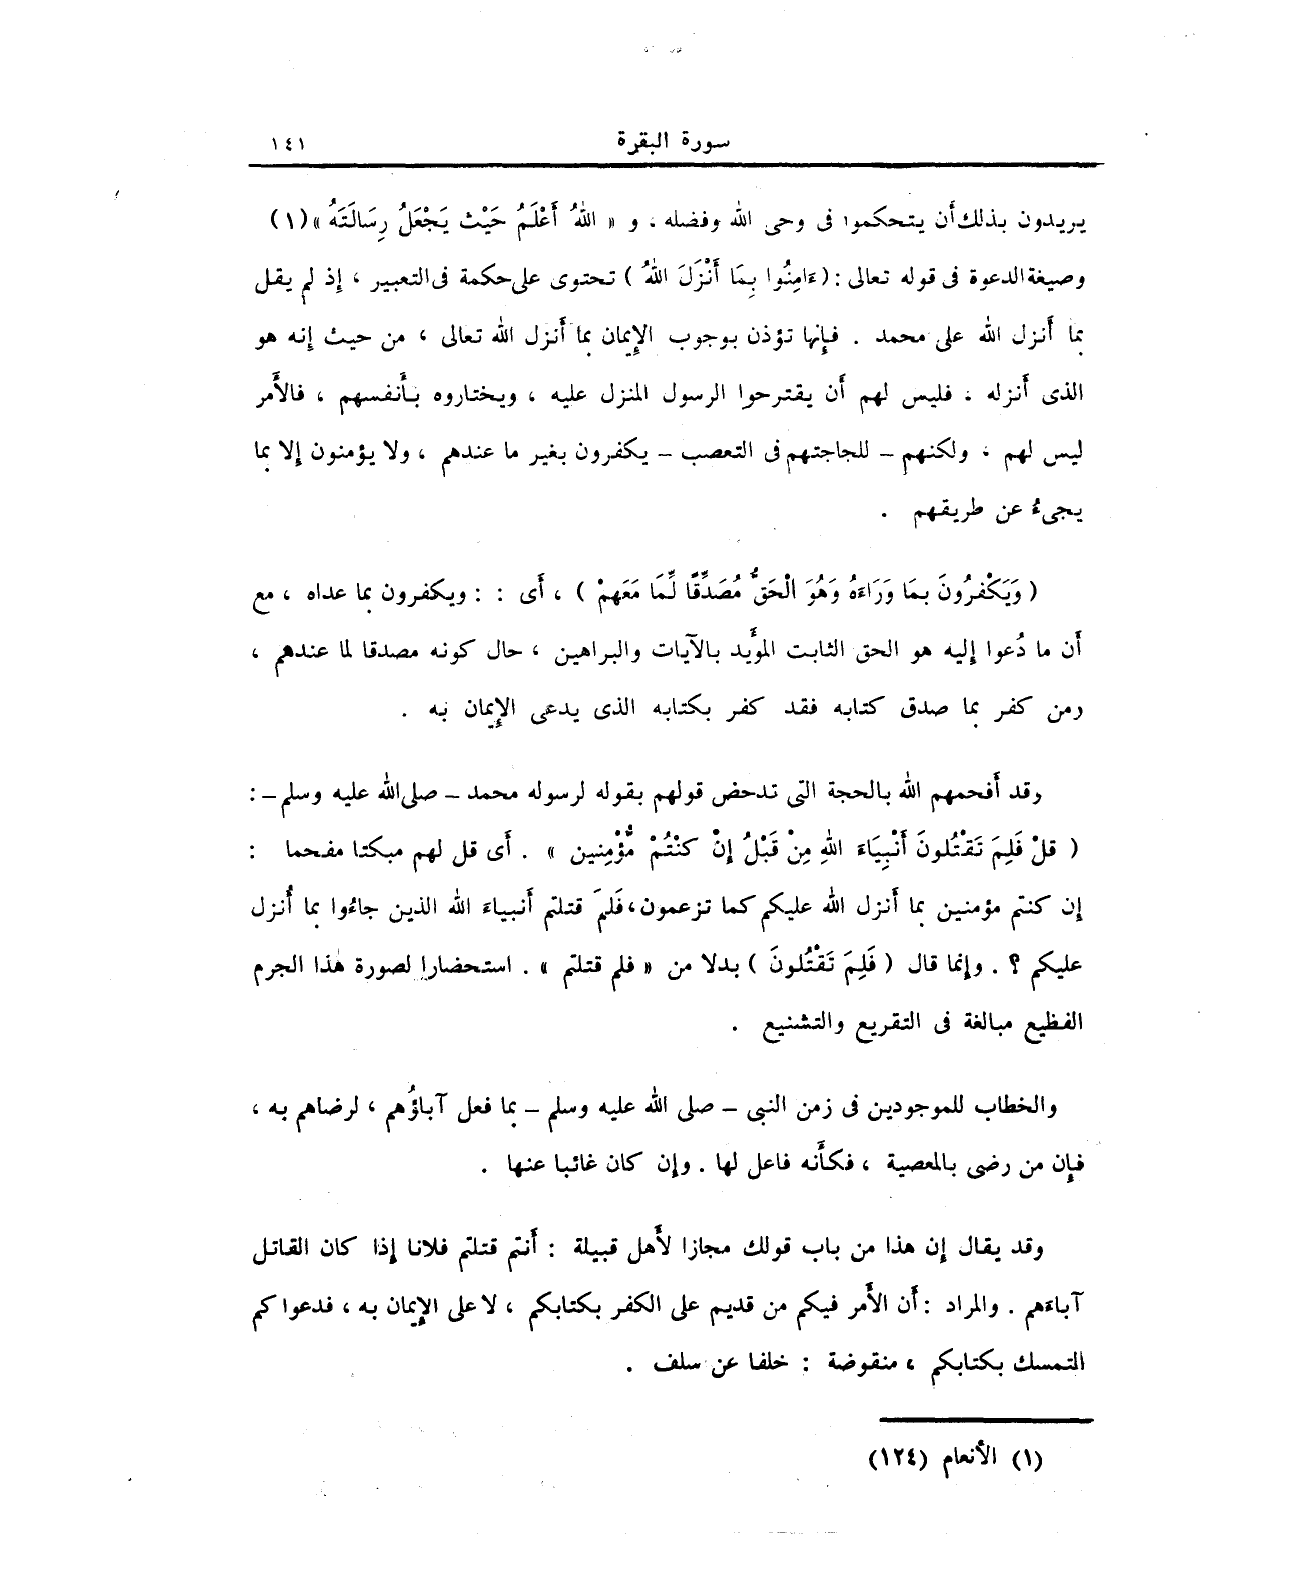 سورة البقرة ١٤١
يريدون بذلك أن يتحكموا فى وحى الله وفضله . و « اللهُ أَعْلَمُ حَيْث يَجْعَلُ رِسَالَتَهُ » (١)
وصيغة الدعوة فى قوله تعالى : ( ءَامِنُوا بِمَا أَنْزَلَ اللهُ ) تحتوى على حكمة فى التعبير ، إذ لم يقل
بما أنزل الله على محمد . فإنها تؤذن بوجوب الإيمان بما أنزل الله تعالى ، من حيث إنه هو
الذى أنزله ، فليس لهم أن يقترحوا الرسول المنزل عليه ، ويختاروه بأنفسهم ، فالأمر
ليس لهم ، ولكنهم – للجاجتهم فى التعصب – يكفرون بغير ما عندهم ، ولا يؤمنون إلا بما
يجىءُ عن طريقهم .
( وَيَكْفرُونَ بمَا وَرَاءَهُ وَهُوَ الْحَقُّ مُصَدِّقًا لِّمَا مَعَهمْ ) ، أى : : ويكفرون بما عداه ، مع
أن ما دُعوا إليه هو الحق الثابت المؤيد بالآيات والبراهين ، حال كونه مصدقا لما عندهم ،
ومن كفر بما صدق كتابه فقد كفر بكتابه الذى يدعى الإيمان به .
وقد أفحمهم الله بالحجة التى تدحض قولهم بقوله لرسوله محمد – صلى الله عليه وسلم – :
( قلْ فَلِمَ تَقْتُلونَ أَنْبِيَاءَ اللهِ مِنْ قَبْلُ إِنْ كنْتُمْ مُّؤْمِنِين » . أى قل لهم مبكتا مفحما :
إن كنتم مؤمنين بما أنزل الله عليكم كما تزعمون ، فَلِمَ قتلتم أنبياءَ الله الذين جاءُوا بما أُنزل
عليكم ؟ . وإنما قال ( فَلِمَ تَقْتُلونَ ) بدلا من « فلم قتلتم » . استحضارا لصورة هٰذا الجرم
الفظيع مبالغة فى التقريع والتشنيع .
والخطاب للموجودين فى زمن النبى – صلى الله عليه وسلم – بما فعل آباؤُهم ، لرضاهم به ،
فإن من رضى بالمعصية ، فكأنه فاعل لها . وإن كان غائبا عنها .
وقد يقال إن هذا من باب قولك مجازا لأهل قبيلة : أنتم قتلتم فلانا إذا كان القاتل
آباءَهم . والمراد : أن الأمر فيكم من قديم على الكفر بكتابكم ، لا على الإيمان به ، فدعواكم
التمسك بكتابكم ، منقوضة : خلفا عن سلف .
(١) الأنعام (١٢٤)